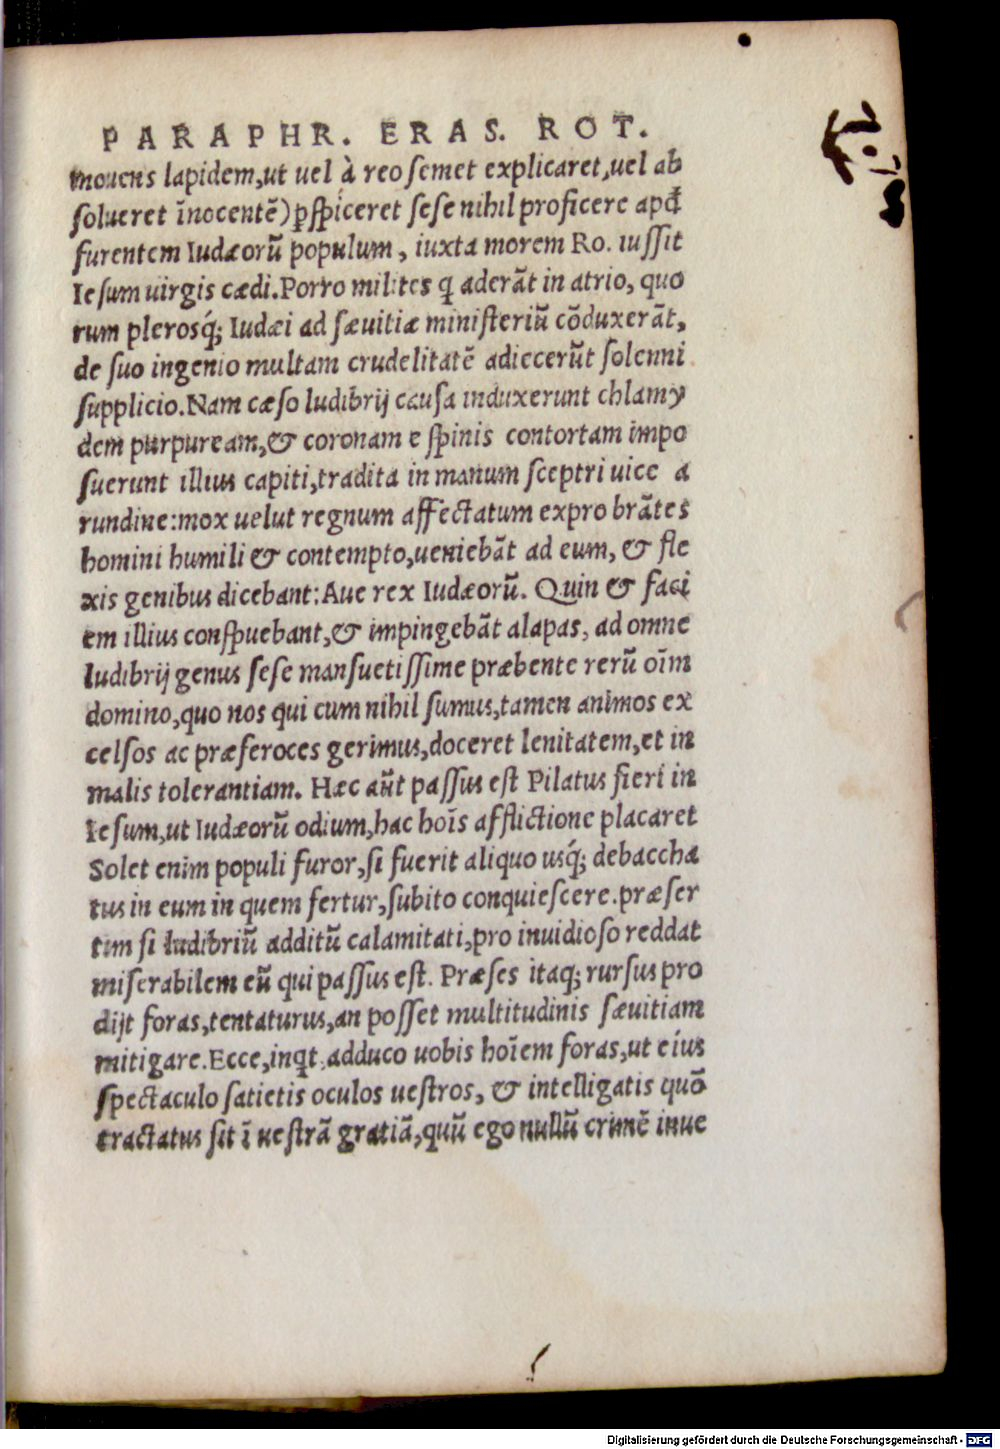 PARAPHR. ERAS. ROT.
mouens lapidem,ut uel à reo semet explicaret,uel ab
solueret īnocentē)ꝑspiceret sese nihil proficere apđ
furentem Iudæorũ populum, iuxta morem Ro. iussit
Iesum uirgis cædi.Porro milites ꝗ aderãt in atrio, quo
rum plerosq́; Iudæi ad sæuitiæ ministeriũ cõduxerãt,
de suo ingenio multam crudelitatẽ adiecerũt solenni
supplicio.Nam cæso ludibrij causa induxerunt chlamy
dem purpuream,& coronam e spinis contortam impo
suerunt illius capiti,tradita in manum sceptri uice a
rundine:mox uelut regnum affectatum expro brãtes
homini humili & contempto,ueniebãt ad eum, & fle
xis genibus dicebant:Aue rex Iudæorũ. Quin & faci
em illius conspuebant,& impingebãt alapas, ad omne
ludibrij genus sese mansuetissime præbente rerũ oīm
domino,quo nos qui cum nihil sumus,tamen animos ex
celsos ac præferoces gerimus,doceret lenitatem,et in
malis tolerantiam. Hæc aũt passus est Pilatus fieri in
Iesum,ut Iudæorũ odium,hac hoīs afflictione placaret
Solet enim populi furor,si fuerit aliquo usq́; debaccha
tus in eum in quem fertur,subito conquiescere.præser
tim si ludibriũ additũ calamitati,pro inuidioso reddat
miserabilem eũ qui passus est. Præses itaq; rursus pro
dijt foras,tentaturus,an posset multitudinis sæuitiam
mitigare.Ecce,inꝗt,adduco uobis hoīem foras,ut eíus
spectaculo satietis oculos uestros, & intelligatis quõ
tractatus sit ī uestrã gratiã,quũ ego nullũ crimẽ inue
Digitalisierung gefördert durch die Deutsche Forschungsgemeinschaft - DFG